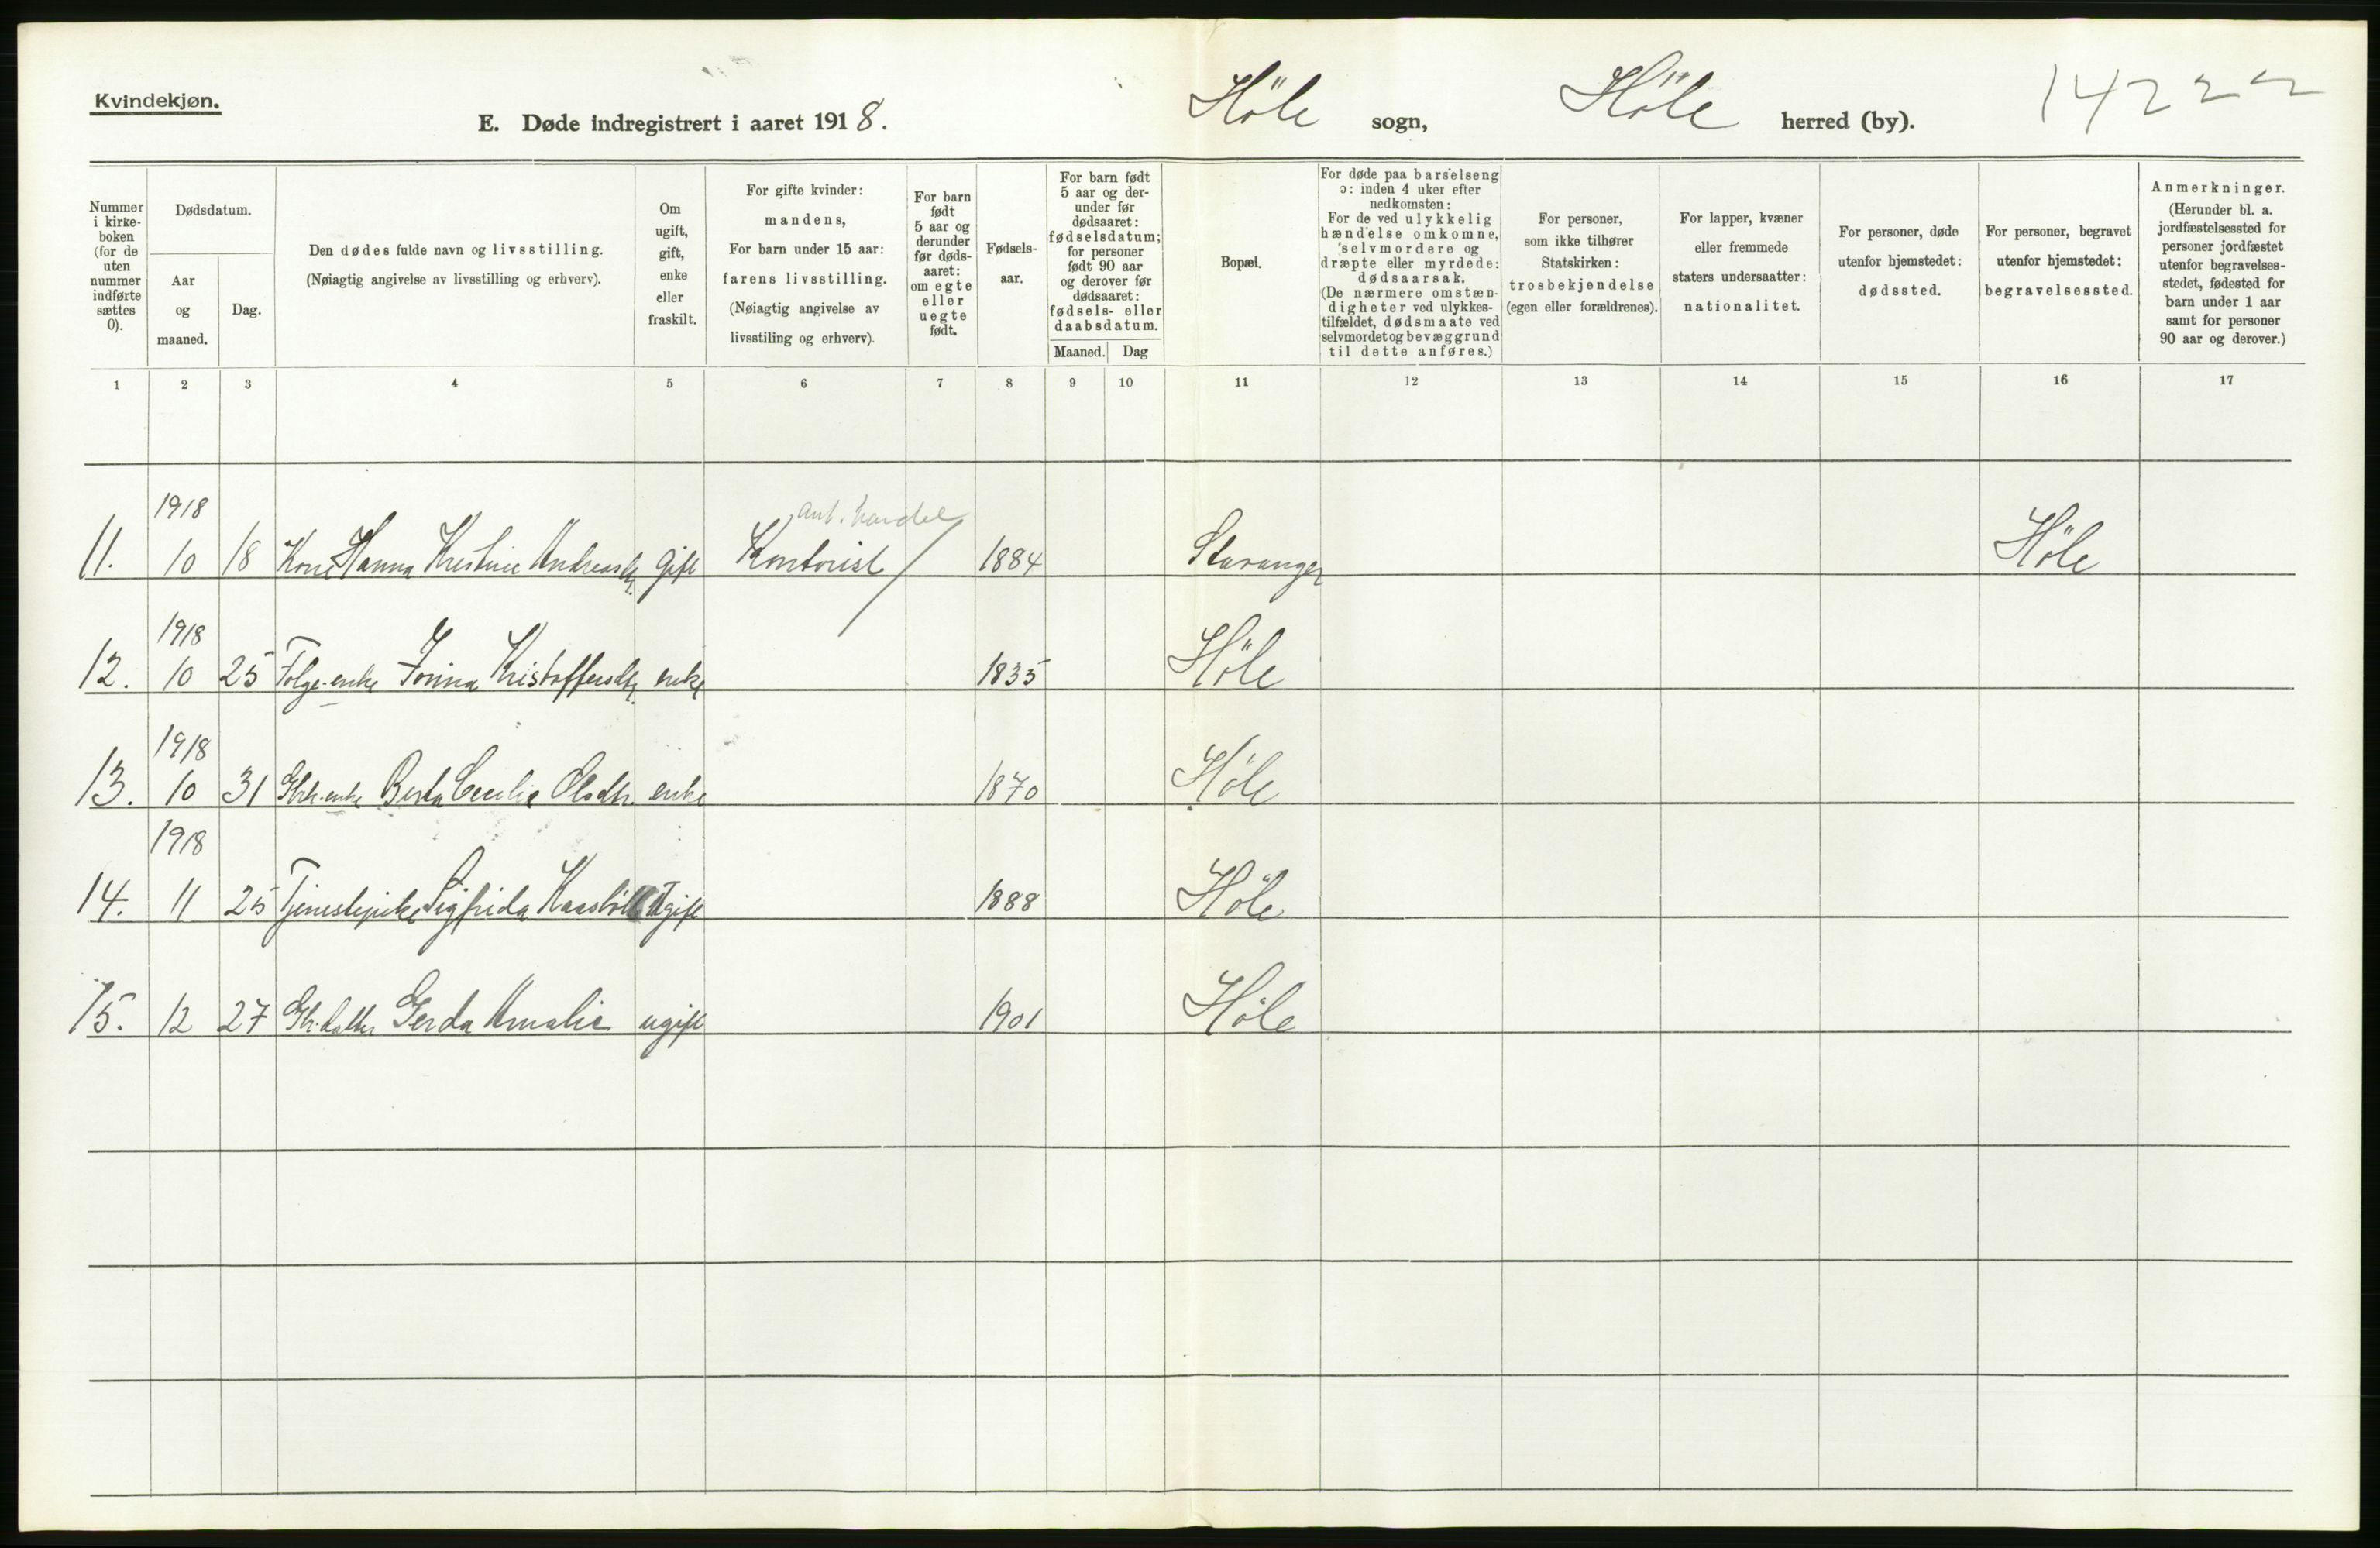 Kvindekjøn.
E. Døde indregistrert i aaret 1918. Höle sogn, Höle herred (by). 14222
Nummer i kirke-boken (for de uten nummer indførte sættes 0).
Dødsdatum.
Aar og maaned.
Dag.
Den dødes fulde navn og livsstilling.
(Nøiagtig angivelse av livsstilling og erhverv).
Om ugift, gift, enke eller fraskilt.
For gifte kvinder: mandens,
For barn under 15 aar: farens livsstilling.
(Nøiagtig angivelse av livsstiling og erhverv).
For barn født 5 aar og derunder før døds-aaret: om egte eller uegte født.
Fødsels-aar.
For barn født 5 aar og der-under før dødsaaret: fødselsdatum; for personer født 90 aar og derover før dødsaaret: fødsels- eller daabsdatum.
Maaned. Dag
Bopæl.
For døde paa barselseng ɔ: inden 4 uker efter nedkomsten:
For de ved ulykkelig hændelse omkomne, selvmordere og dræpte eller myrdede: dødsaarsak.
(De nærmere omstæn-digheter ved ulykkes-tilfældet, dødsmaate ved selvmordet og bevæggrund til dette anføres.)
For personer, som ikke tilhører Statskirken: trosbekjendelse (egen eller forældrenes).
For lapper, kvæner eller fremmede staters undersaatter: nationalitet.
For personer, døde utenfor hjemstedet: dødssted.
For personer, begravet utenfor hjemstedet: begravelsessted.
Anmerkninger.
(Herunder bl. a. jordfæstelsessted for personer jordfæstet utenfor begravelses-stedet, fødested for barn under 1 aar samt for personer 90 aar og derover.)
1 2 3 4 5 6 7 8 9 10 11 12 13 14 15 16 17
1918 ant. handel
11. 10 18 Kone Hanna Kristine Andreasdtr. gift Kontorist 1884 Stavanger Höle
1918
12. 10 25 Folge-enke Jorina Kristoffersdtr. enke 1835 Höle
1918
13. 10 31 Gbr.-enke Berta Cecilie Olsdtr. enke 1870 Höle
1918
14. 11 25 Tjenestepike Sigfrida Ugift 1888 Höle
15. 12 27 Gbr.datter Gerda Amalie ugift 1901 Höle